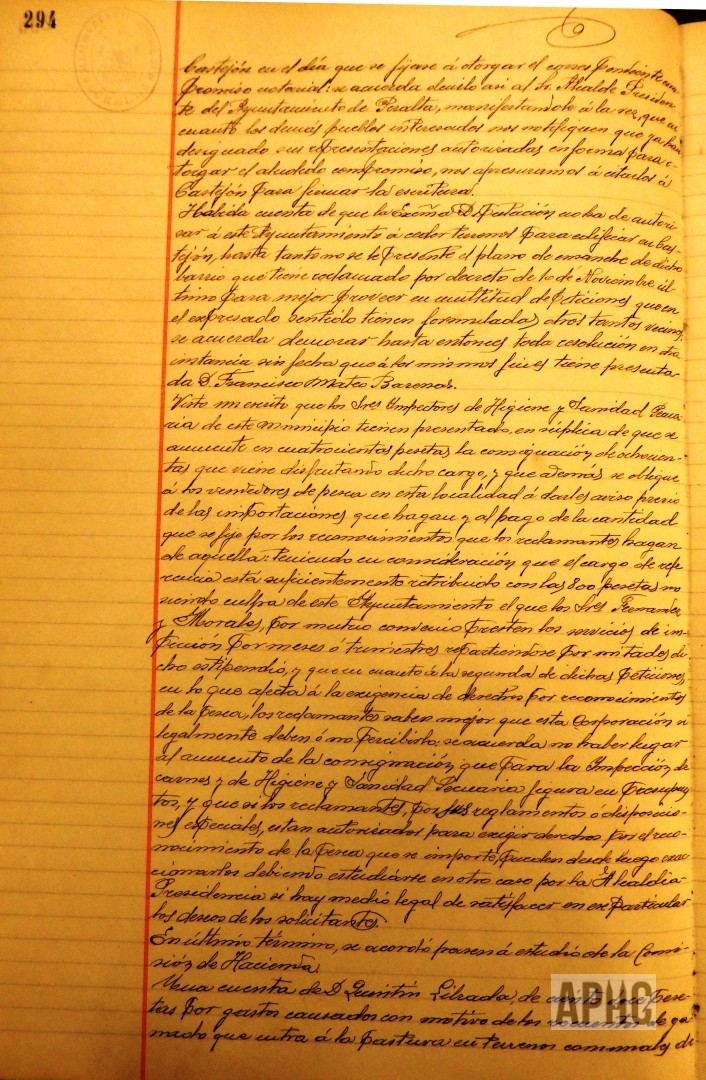 294
Castejón en el día que se fijase á otorgar el correspondiente com-
promiso notarial: se acuerda decirlo así al Sr. Alcalde Presiden-
te del Ayuntamiento de Peralta, manifestándole á la vez, que en
cuanto los demás pueblos interesados nos notifiquen que ya han
designado sus representaciones autorizadas en forma para o-
torgar el aludido compromiso, nos apresuramos á citarlos á
Castejón para firmar la escritura.
Habida cuenta de que la Excma Diputación no ha de autori-
sar á este Ayuntamiento á ceder terrenos para edificar en Cas-
tejón, hasta tanto no se le presente el plano de ensanche de dicho
barrio que tiene reclamado por decreto de 10 de Noviembre úl-
timo para mejor proveer en multitud de peticiones que en
el expresado sentido tienen formuladas otros tantos vecinos,
se acuerda demorar hasta entonces toda resolución en la
instancia sin fecha que á los mismos fines tiene presenta-
da D. Francisco Mateo
Visto un escrito que los Sres Inspectores de Higiene y Sanidad Pecua-
ria de este Municipio tienen presentado, en súplica de que se
aumente en cuatrocientas pesetas la consignación de ochocien-
tas que viene disfrutando dicho cargo, y que además se obligue
á los vendedores de pesca en esta localidad á darles aviso previo
de las importaciones que hagan y al pago de la cantidad
que se fije por los reconocimientos que los reclamantes hagan
de aquella: teniendo en consideración que el cargo de refe-
rencia está suficientemente retribuido con las 800 pesetas no
siendo culpa de este Ayuntamiento el que los Sres Fernandez
y Morales, por mutuo convenio presten los servicios de ins-
pección por meses ó trimestres repartiendose por mitades di-
cho estipendio, y que en cuanto á la segunda de dichas peticiones,
en lo que afecta á la exigencia de derechos por reconocimientos
de la pesca, los reclamantes saben mejor que esta Corporación si
legalmente deben ó no percibirlo: se acuerda no haber lugar
al aumento de la consignación que para la Inspección de
carnes y de Higiene y Sanidad Pecuaria figura en Presupues-
tos, y que si los reclamantes, por sus reglamentos ó disposicio-
nes especiales, estan autorisados para exigir derechos por el reco-
nocimiento de la pesca que se importe, pueden desde luego exac-
cionarlos debiendo estudiarse en otro caso por la Alcaldia
Presidencia si hay medio legal de satisfacer en ese particular
los deseos de los solicitantes.
En último término, se acordó pasen á estudio de la Comi-
sión de Hacienda.
Una cuenta de D Quintin de ciento doce pese-
tas por gastos causados con motivo de los recuentos de ga-
nado que entra á la pastura en terrenos comunales di
APHC